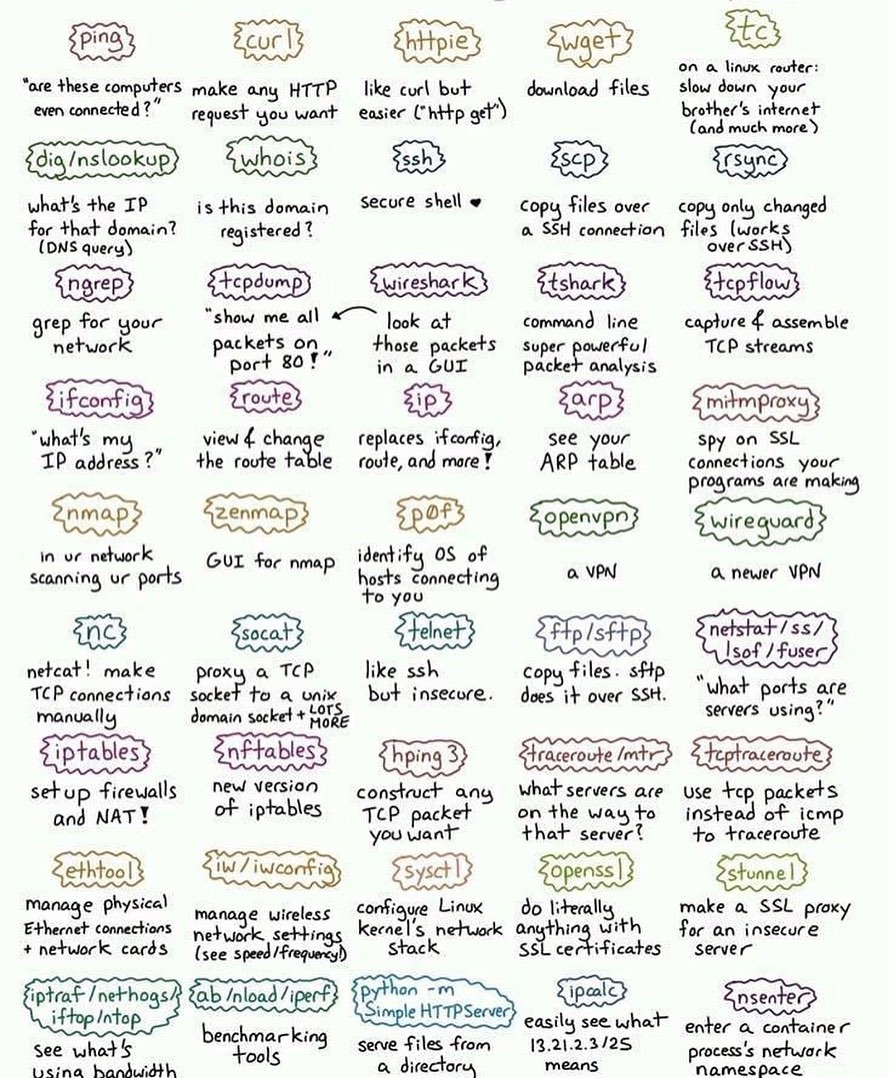 ping
"are these computers
even connected?"
curl
make any HTTP
request you want
httpie
like curl but
easier ("http get")
wget
download files
tc
on a linux router:
slow down your
brother's internet
(and much more)
dig/nslookup
what's the IP
for that domain?
(DNS query)
whois
is this domain
registered?
ssh
secure shell ♥
scp
copy files over
a SSH connection
rsync
copy only changed
files (works
over SSH)
ngrep
grep for your
network
tcpdump
"show me all
packets on
port 80!"
wireshark
look at
those packets
in a GUI
tshark
command line
super powerful
packet analysis
tcpflow
capture & assemble
TCP streams
ifconfig
"what's my
IP address?"
route
view & change
the route table
ip
replaces ifconfig,
route, and more!
arp
see your
ARP table
mitmproxy
spy on SSL
connections your
programs are making
nmap
in ur network
scanning ur ports
zenmap
GUI for nmap
p0f
identify OS of
hosts connecting
to you
openvpn
a VPN
wireguard
a newer VPN
nc
netcat! make
TCP connections
manually
socat
proxy a TCP
socket to a unix
domain socket + LOTS
MORE
telnet
like ssh
but insecure.
ftp/sftp
copy files. sftp
does it over SSH.
netstat/ss/
lsof/fuser
"what ports are
servers using?"
iptables
set up firewalls
and NAT!
nftables
new version
of iptables
hping3
construct any
TCP packet
you want
traceroute/mtr
what servers are
on the way to
that server?
tcptraceroute
use tcp packets
instead of icmp
to traceroute
ethtool
manage physical
Ethernet connections
+ network cards
iw/iwconfig
manage wireless
network settings
(see speed/frequency!)
sysctl
configure Linux
kernel's network
stack
openssl
do literally
anything with
SSL certificates
stunnel
make a SSL proxy
for an insecure
server
iptraf/nethogs/
iftop/ntop
see what's
using bandwidth
ab/nload/iperf
benchmarking
tools
python -m
SimpleHTTPServer
serve files from
a directory
ipcalc
easily see what
13.21.2.3/25
means
nsenter
enter a container
process's network
namespace